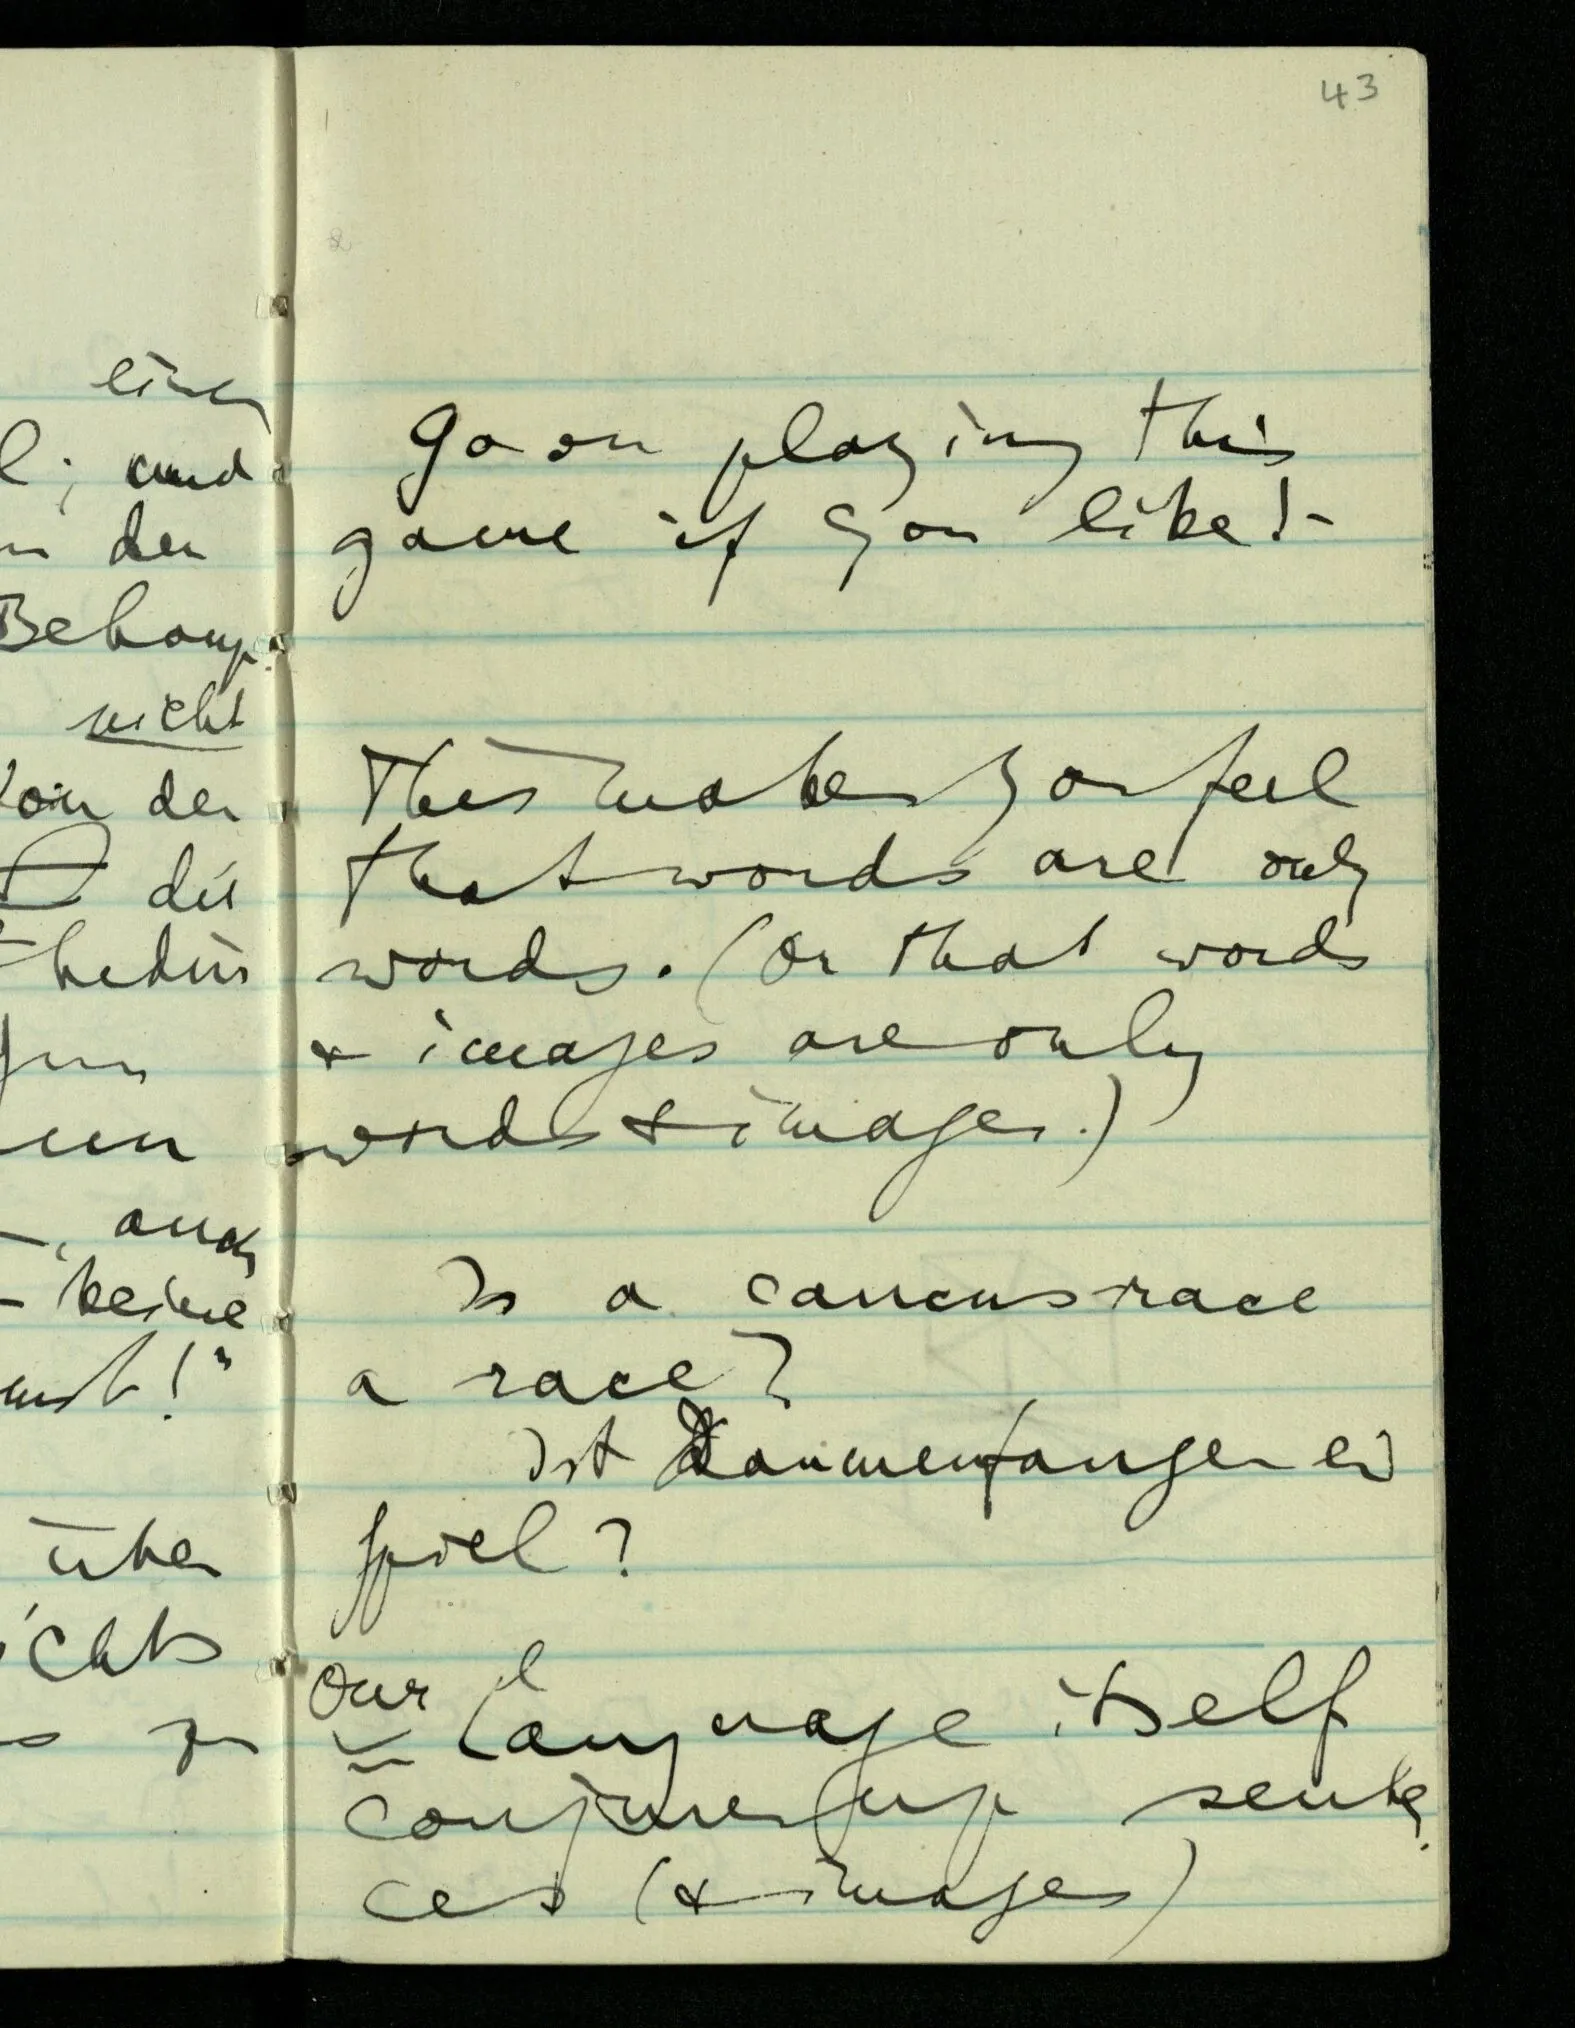 43
einen
l; und
n den
Behaup-
nicht
von der
die
thedin
un
-, auch
- keine
!"
über
ichts
s zu
Go on playing this
game if you like! -
This makes you feel
that words are only
words. (Or that words
& images are only
words & images.)
Is a caucusrace
a race?
Ist Daumenfangen ein
Spiel?
Our language itself
conjures up senten-
ces (& images)